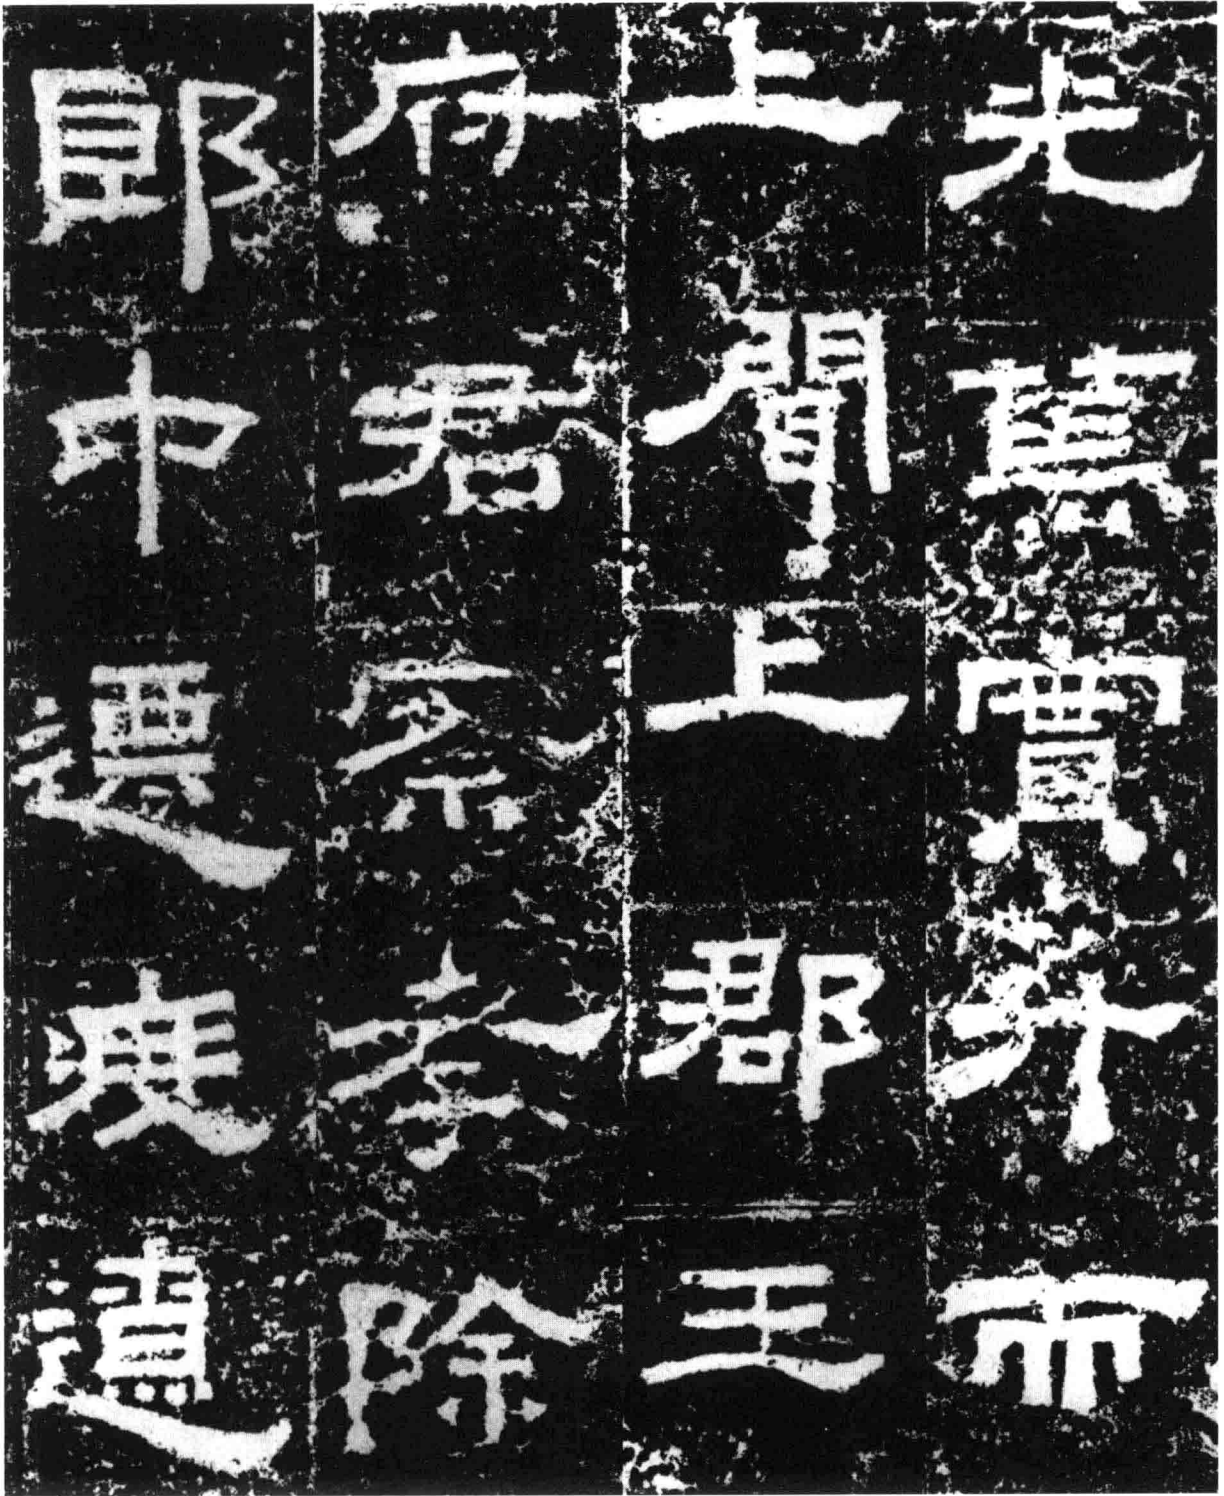 光實升而
上聞上郡王
府君察孝除
郎中遷度遼